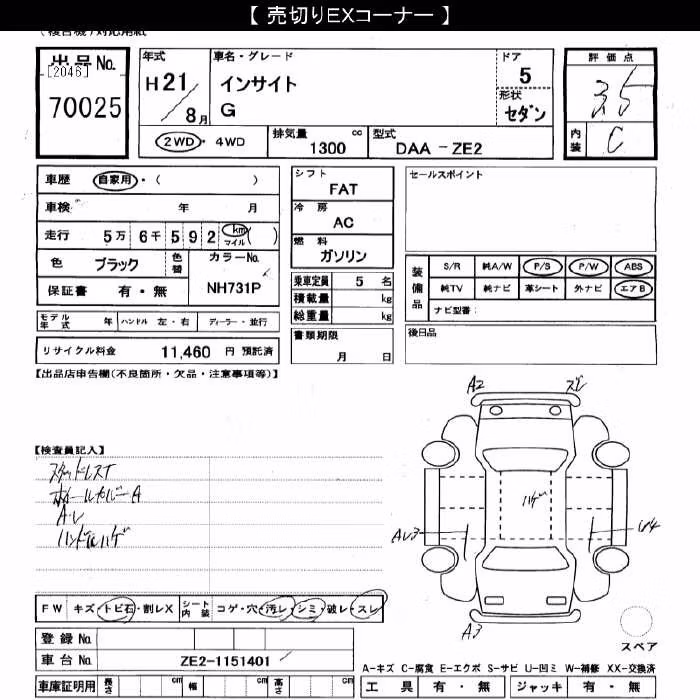 【 売切りEXコーナー 】
出品No.
[2046]
70025
年式
H21/8月
車名・グレード
インサイト
G
ドア
5
形状
セダン
評価点
3.5
内装
C
2WD・4WD
排気量 cc
1300
型式
DAA-ZE2
車歴 自家用・( )
車検 年 月
走行 5万 6千 5 9 2 km マイル ( )
色 ブラック 色替 カラーNo.
保証書 有・無 NH731P
シフト
FAT
冷房
AC
燃料
ガソリン
乗車定員 5 名
積載量 kg
総重量 kg
書類期限
月 日
セールスポイント
装備品
S/R 純A/W P/S P/W ABS
純TV 純ナビ 革シート 外ナビ エアB
ナビ型番:
後日品
モデル年式 年 ハンドル 左・右 ディーラー・並行
リサイクル料金 11,460 円 預託済
【出品店申告欄(不良箇所・欠品・注意事項等)】
【検査員記入】
スタッドレスT
ホイールカバーA
A.レ
ハンドルハゲ
A2
ハゲ
A3
FW キズ・トビ石・割レX シート内装 コゲ・穴・汚レ・シミ・破レ・スレ
登録No.
車台No. ZE2-1151401
車庫証明用 長さ cm 幅 cm 高さ cm
スペア
A-キズ C-腐食 E-エクボ S-サビ U-凹ミ W-補修 XX-交換済
工具 有・無 ジャッキ 有・無